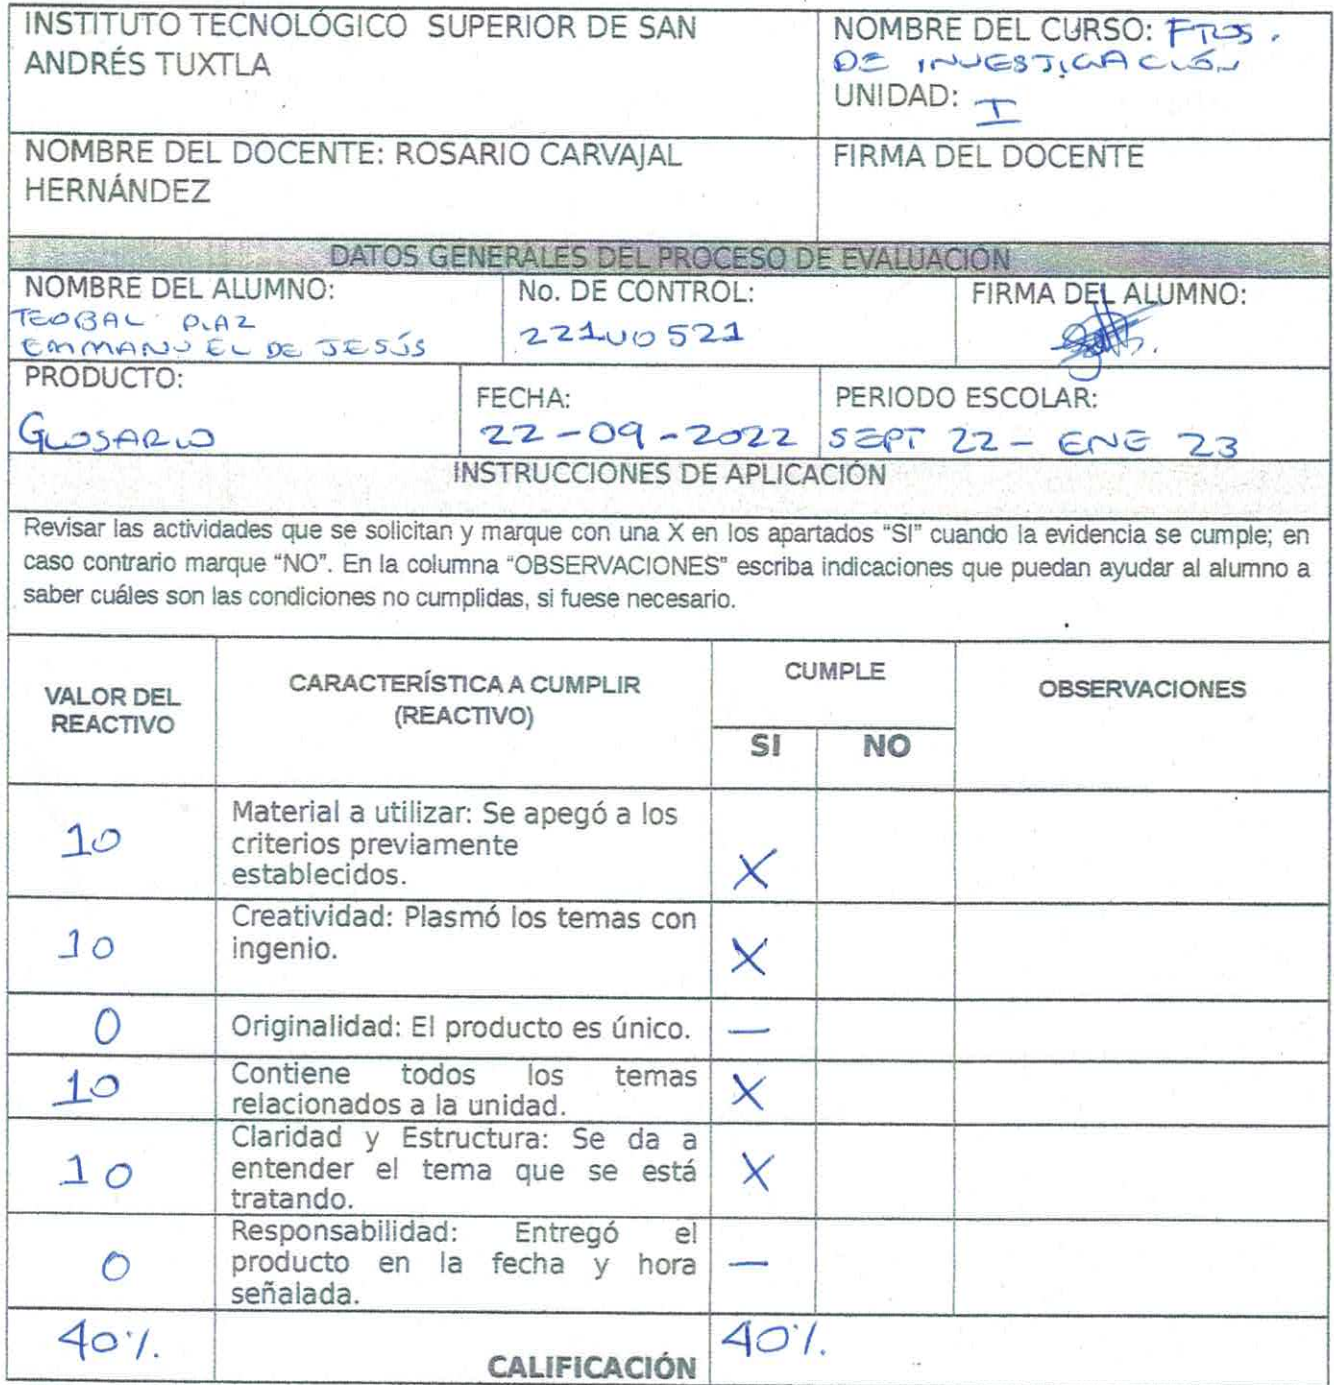 INSTITUTO TECNOLÓGICO SUPERIOR DE SAN
ANDRÉS TUXTLA
NOMBRE DEL CURSO: FTOS.
DE INVESTIGACIÓN
UNIDAD: I
NOMBRE DEL DOCENTE: ROSARIO CARVAJAL
HERNÁNDEZ
FIRMA DEL DOCENTE
DATOS GENERALES DEL PROCESO DE EVALUACIÓN
NOMBRE DEL ALUMNO:
TEOBAL DIAZ
EMMANUEL DE JESÚS
No. DE CONTROL:
221U0521
FIRMA DEL ALUMNO:
PRODUCTO:
GLOSARIO
FECHA:
22-09-2022
PERIODO ESCOLAR:
SEPT 22 - ENE 23
INSTRUCCIONES DE APLICACIÓN
Revisar las actividades que se solicitan y marque con una X en los apartados “SI” cuando la evidencia se cumple; en
caso contrario marque “NO”. En la columna “OBSERVACIONES” escriba indicaciones que puedan ayudar al alumno a
saber cuáles son las condiciones no cumplidas, si fuese necesario.
VALOR DEL
REACTIVO
CARACTERÍSTICA A CUMPLIR
(REACTIVO)
CUMPLE
SI NO
OBSERVACIONES
10
Material a utilizar: Se apegó a los
criterios previamente
establecidos.
X
10
Creatividad: Plasmó los temas con
ingenio.
X
0
Originalidad: El producto es único.
—
10
Contiene todos los temas
relacionados a la unidad.
X
10
Claridad y Estructura: Se da a
entender el tema que se está
tratando.
X
0
Responsabilidad: Entregó el
producto en la fecha y hora
señalada.
—
40%.
CALIFICACIÓN
40%.